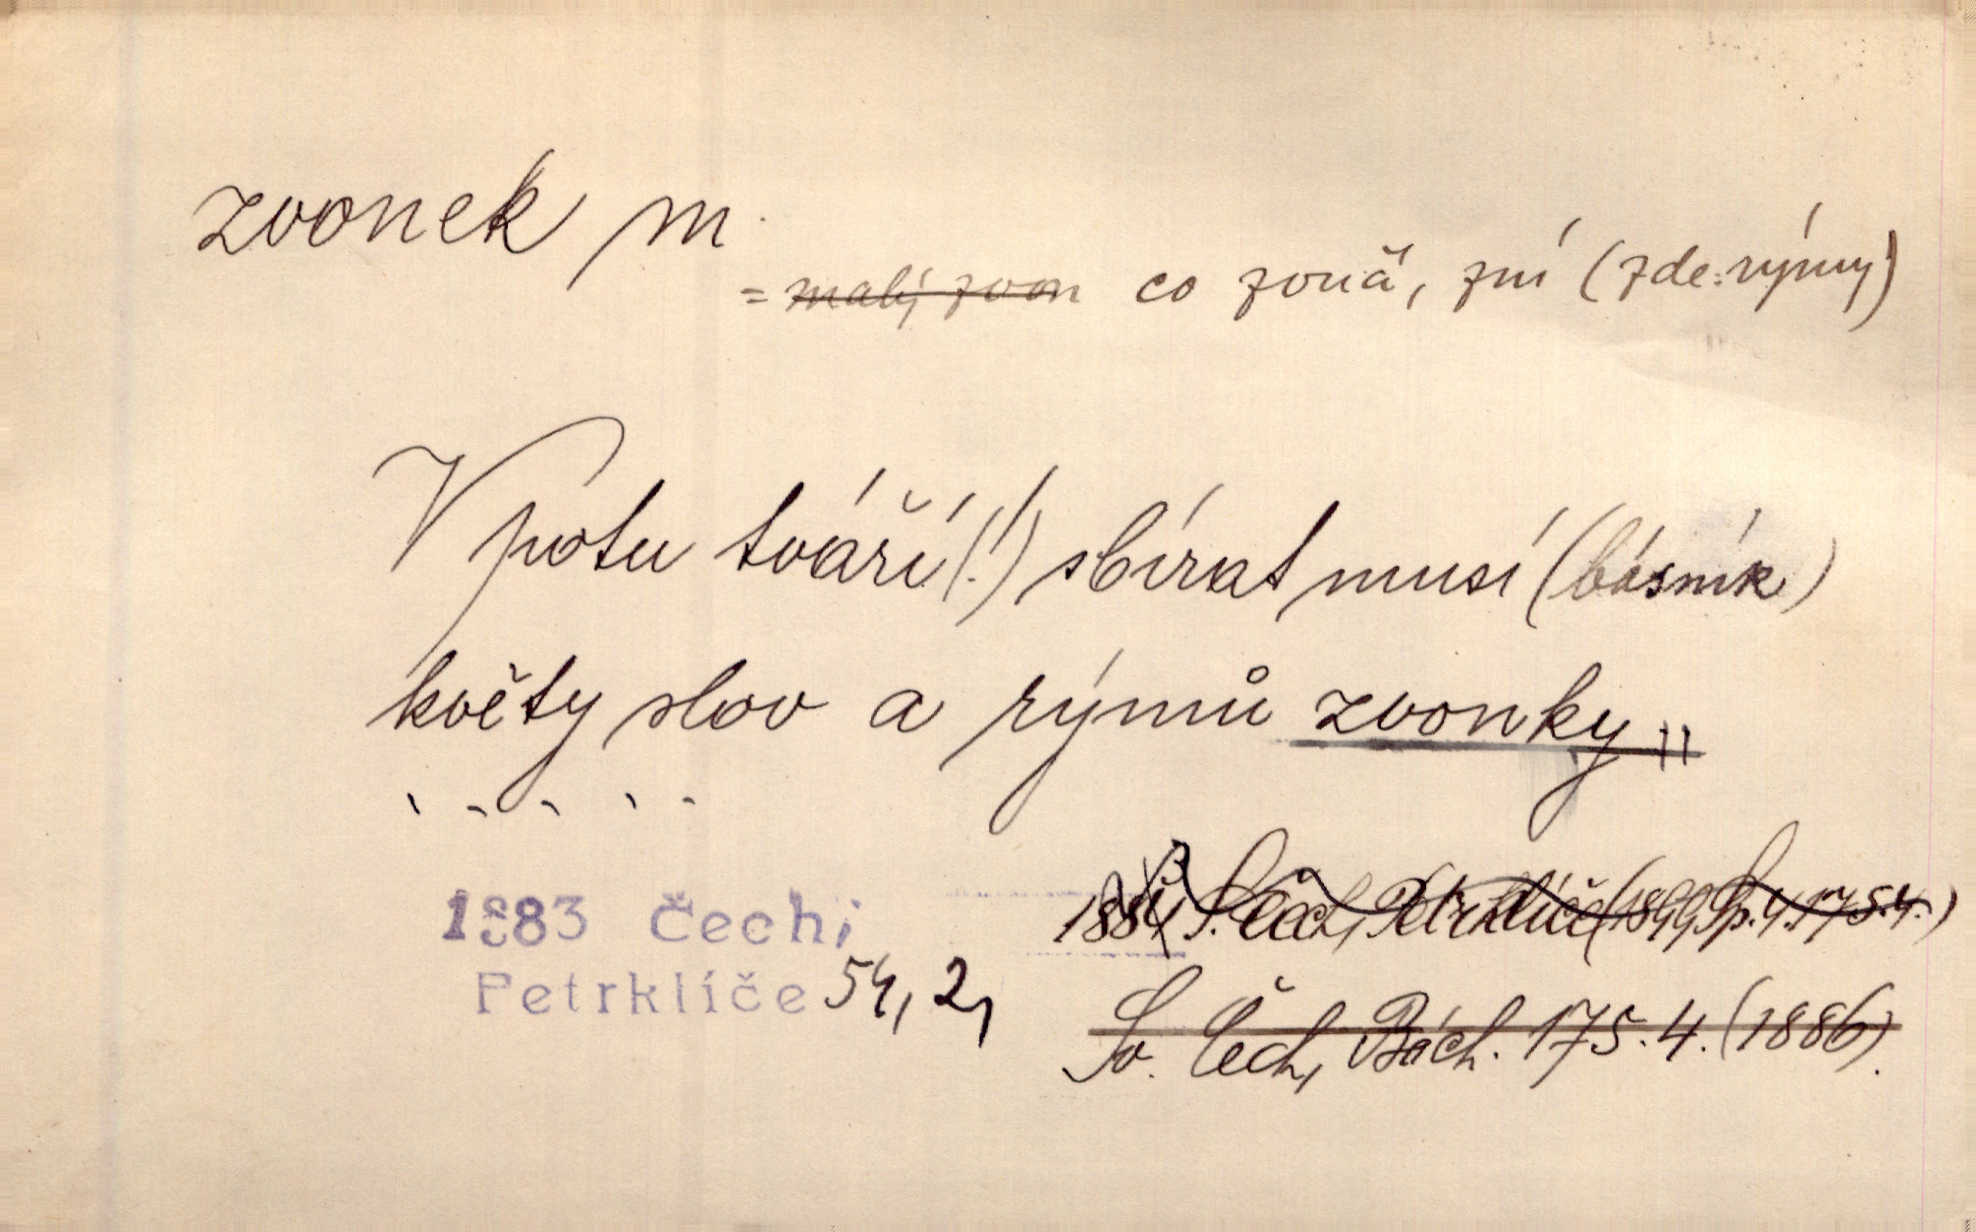 zvonek m.
= malý zvon co zvučí, zní (zde: rýmy)
V potu tváří (!) sbírat musí (básník)
květy slov a rýmů zvonky „
. . . . .
1883 Čech,
Petrklíče 54, 2,
1884 S. Čech, Petrklíče (1899 Sp. 4. 175.4.)
Sv. Čech, Bách. 175. 4. (1886).